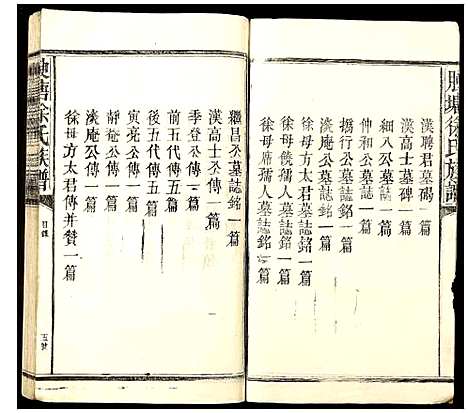 徐氏族譜
漢聘君墓碣一篇
漢高士墓碑一篇
細八公墓誌一篇
仲和公墓誌一篇
橋行公墓誌銘一篇
淡庵公墓誌銘一篇
徐母方太君墓誌銘一篇
徐母饒孺人墓誌銘一篇
徐母席孺人墓誌銘一篇
繼昌公墓誌銘一篇
漢高士公傳一篇
季登公傳一篇
前五代傳五篇
後五代傳五篇
寅亮公傳一篇
靜菴公傳一篇
淡庵公傳一篇
徐母方太君傳并贊一篇
塘徐氏族譜
目錄